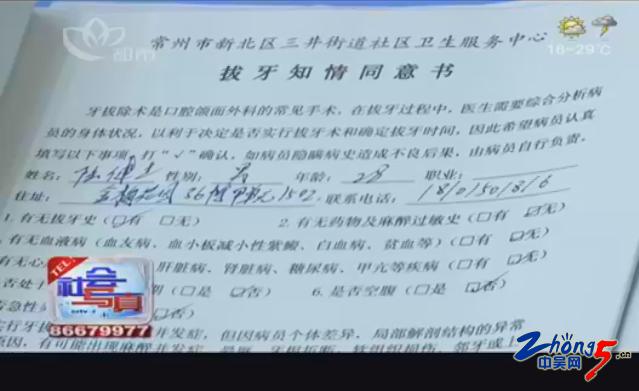 都市
16-29℃
常州市新北区三井街道社区卫生服务中心
拔牙知情同意书
牙拔除术是口腔颌面外科的常见手术，在拔牙过程中，医生需要综合分析病
员的身体状况，以利于决定是否实行拔牙术和确定拔牙时间，因此希望病员认真
填写以下事项，打“√”确认，如病员隐瞒病史造成不良后果，由病员自行负责。
姓名： 性别：男 年龄：28 职业：
住址： 联系电话：
1. 有无拔牙史（□有 □无） 2. 有无药物及麻醉过敏史（□有 ☑无）
有无血液病（血友病、血小板减小性紫癜、白血病、贫血等）（□有 ☑无）
有无心 肝脏病、肾脏病、糖尿病、甲亢等疾病（□有 ☑无）
否处于 期（□是 ☑否） 6. 是否空腹（□是 ☑否）
急性 否）
行牙拔 并发症，但因病员个体差异，局部解剖结构的异常
原因，有可能出现麻醉
TEL:
社会写真
86679977
Zhong5.cn
中吴网